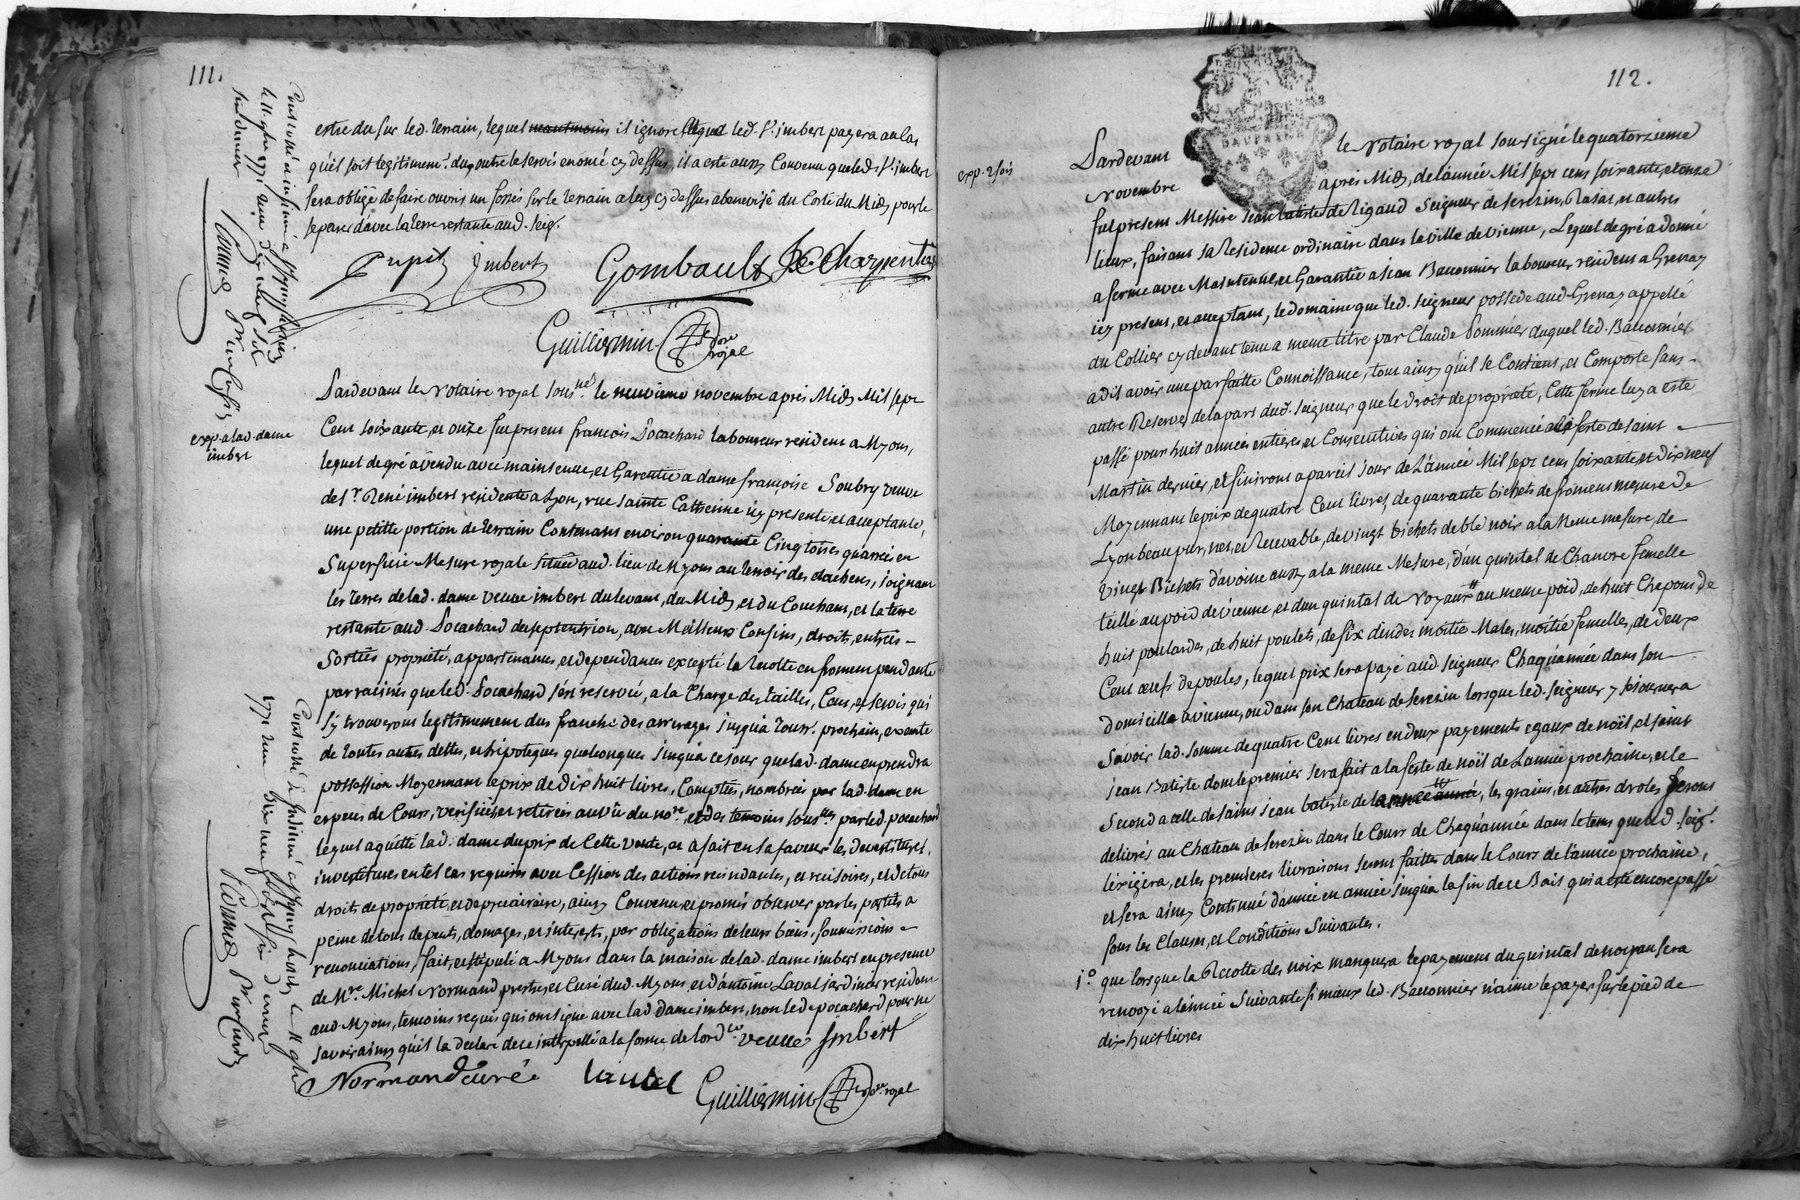 111.
estre du sur led. terrain, lequel neantmoins il ignore lequel led. Sr. imbert payera au cas
qu'il soit legitimemt. du, outre le servis enoncé cy dessus, il a esté aussy Convenu que led. Sr. imbert
sera obligé de faire ouvrir un fossés sur le terrain a luy cy dessus abenevisé du Costé du Midy pour le
separer davec la terre restante aud. seig.
Pupil Imbert Gombault Decharpenties
Guilliermin nore royal
Pardevant le Notaire royal sousné. le neuvieme novembre après Midy Mil sept
exp. a lad. dame
imbert
Cent soixante, et onze fut present francois Pocachard laboureur resident a Myons,
lequel de gré a vendu avec maintenue, et Garentie a dame francoise Soubry veuve
de Sr. René imbert residente a Lyon, rue sainte Catherine icy presente et acceptante,
une petitte portion de terrain Contenant environ quarante Cinq toises quarrée en
Superficie Mesure royale située aud. lieu de Myons au terroir des , joignant
les terres de lad. dame veuve imbert du levant, du Midy, et du Couchant, et la terre
restante aud. Pocachard de septentrion, avec Meilleurs Confins, droits, entrées
Sorties propriété, appartenances, et dependances excepté la recolte en froment pendante
par racines que led. Pocachard s'est reservée, a la Charge des tailles, Cens, et servis qui
s'y trouveront legitimement dus franche des arrerages jusqu'a tousst. prochain, exempte
de toutes autres dettes, et hipoteques quelconques jusqu'a ce jour que lad. dame en prendra
possession Moyennant le prix de dix huit livres, Comptées, nombrées par lad. dame en
especes de Cours, verifiées et retirées au vû du nore. et des temoins sousnés par led. pocachard
lequel a quitté lad. dame du prix de Cette vente, et a fait en sa faveur les devestitures,
investitures en tel cas requises avec Cession des actions rescindantes, et rescisoires, et de tous
droits de propriété, et de precairaire, ainsy Convenu et promis observer par les parties a
peine de tous depents, domages, et interests, par obligations de leurs biens, soumissions
renonciations, fait, et stipulé a Myons dans la maison de lad. dame imbert en presence
de Mre. Michel Normand prestre, et Curé dud. Myons, et d'antoine Laval jardinier resident
aud. Myons, temoins requis qui ont signe avec lad. dame imbert, non led. pocachard pour ne
savoir ainsy qu'il la declaré de ce interpellé a la forme de lordce. veuve Imbert
Normand Curé laval Guilliermin nore. royal
112.
DAUPHINÉ
exp. 2 fois
Pardevant le Notaire royal sousigné le quatorzieme
Novembre après Midy, de lannée Mil sept cens soixante, et onze
fut present Messire Jean Batiste de Rigaud Seigneur de serezin, Rasat, et autres
lieux, faisant sa Residence ordinaire dans la ville de vienne, Lequel de gré a donné
a ferme avec Maintenue, et Garantie a jean Baconnier laboureur, resident a Grenay
icy present, et acceptant, le domaine que led. seigneur possede aud. Grenay appellé
du Collier cy devant tenu a meme titre par Claude Pommier duquel led. Baconnier
a dit avoir une parfaitte Connoissance, tout ainsy qu'il se Contient, et Comporte sans
autre Reserves de la part dud. seigneur que le droit de propriété, Cette ferme luy a esté
passé pour huit années entieres, et Consecutives qui ont Commencé a la feste de saint
Martin dernier, et finiront a pareil jour de L'année Mil sept cens soixante, et dix neuf
Moyennant le prix de quatre Cent livres, de quarante bichets de froment mesure de
Lyon beau pur, net, et Recevable, de vingt bichets de blé noir a la Meme mesure, de
vingt Bichets d'avoine aussy a la meme Mesure, d'un quintal de Chanvre femelle
teillé au poid de vienne, et d'un quintal de noyaux au meme poid, de huit Chepons, de
huit poulardes, de huit poulets, de six dindes moitié Males, moitié femelles, de deux
Cent œufs de poules, lequel prix sera payé aud. seigneur Chaqu'année dans son
domicille a vienne, ou dans son Chateau de serezin lorsque led. seigneur y sejournera
savoir lad. somme de quatre Cent livres en deux payements egaux de noël, et saint
jean Batiste dont le premier sera fait a la feste de noël de L'année prochaine, et le
Second a celle de saint jean batiste de la meme année, les grains, et autres droles seront
delivrés au Chateau de serezin dans le Cours de Chaqu'année dans le tems que led. seigr.
l'exigera, et les premieres livraisons seront faittes dans le Cours de l'année prochaine,
et sera ainsy Continué d'année en année jusqu'a la fin de ce Bail qui a esté encore passé
sous les Clauses, et Conditions Suivantes.
1.o que lorsque la Recolte des noix manquera le payement du quintal de noyau sera
renvoyé a l'année Suivante si mieux led. Baconnier n'aime le payer sur le pied de
dix huit livres